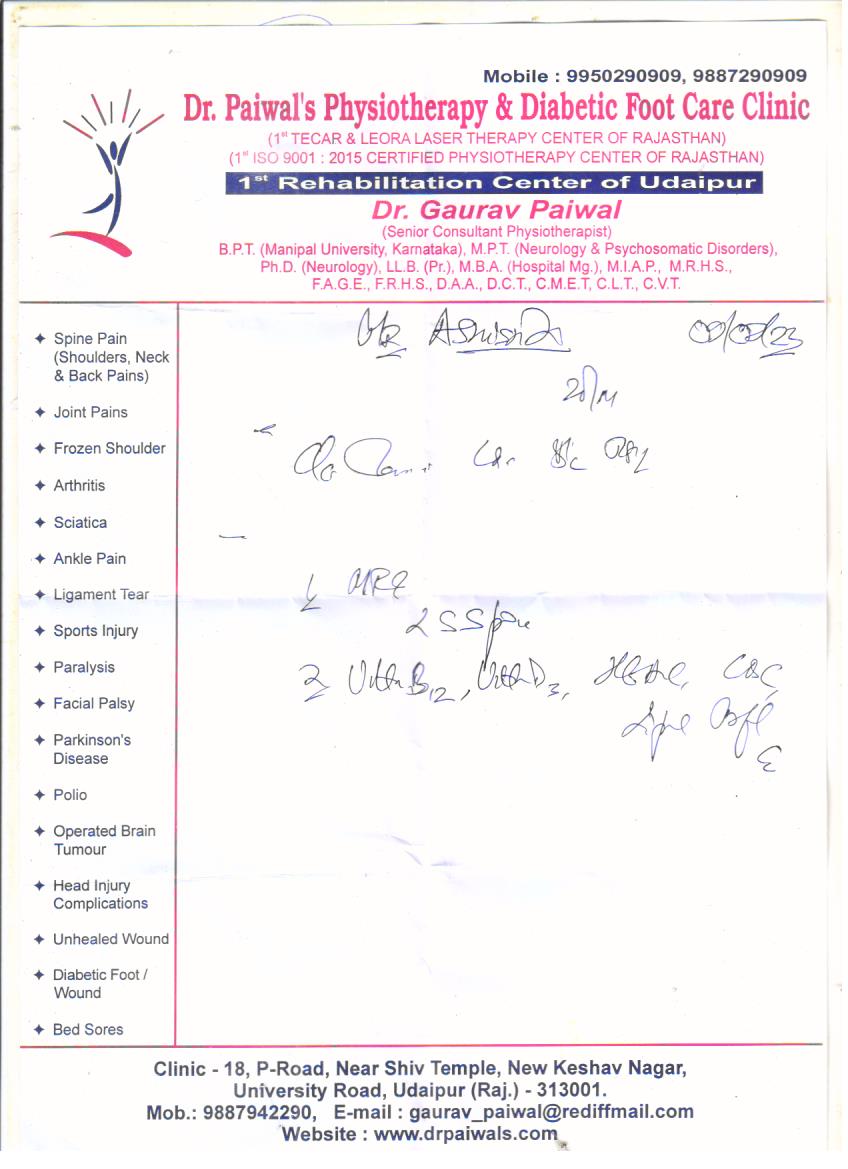 Mobile : 9950290909, 9887290909
Dr. Paiwal's Physiotherapy & Diabetic Foot Care Clinic
(1st TECAR & LEORA LASER THERAPY CENTER OF RAJASTHAN)
(1st ISO 9001 : 2015 CERTIFIED PHYSIOTHERAPY CENTER OF RAJASTHAN)
1st Rehabilitation Center of Udaipur
Dr. Gaurav Paiwal
(Senior Consultant Physiotherapist)
B.P.T. (Manipal University, Karnataka), M.P.T. (Neurology & Psychosomatic Disorders),
Ph.D. (Neurology), LL.B. (Pr.), M.B.A. (Hospital Mg.), M.I.A.P., M.R.H.S.,
F.A.G.E., F.R.H.S., D.A.A., D.C.T., C.M.E.T, C.L.T., C.V.T.
Spine Pain
(Shoulders, Neck
& Back Pains)
Joint Pains
Frozen Shoulder
Arthritis
Sciatica
Ankle Pain
Ligament Tear
Sports Injury
Paralysis
Facial Palsy
Parkinson's
Disease
Polio
Operated Brain
Tumour
Head Injury
Complications
Unhealed Wound
Diabetic Foot /
Wound
Bed Sores
Mr
1 MRI
2 Vita B12, Vita D3, CBC,
Clinic - 18, P-Road, Near Shiv Temple, New Keshav Nagar,
University Road, Udaipur (Raj.) - 313001.
Mob.: 9887942290, E-mail : gaurav_paiwal@rediffmail.com
Website : www.drpaiwals.com